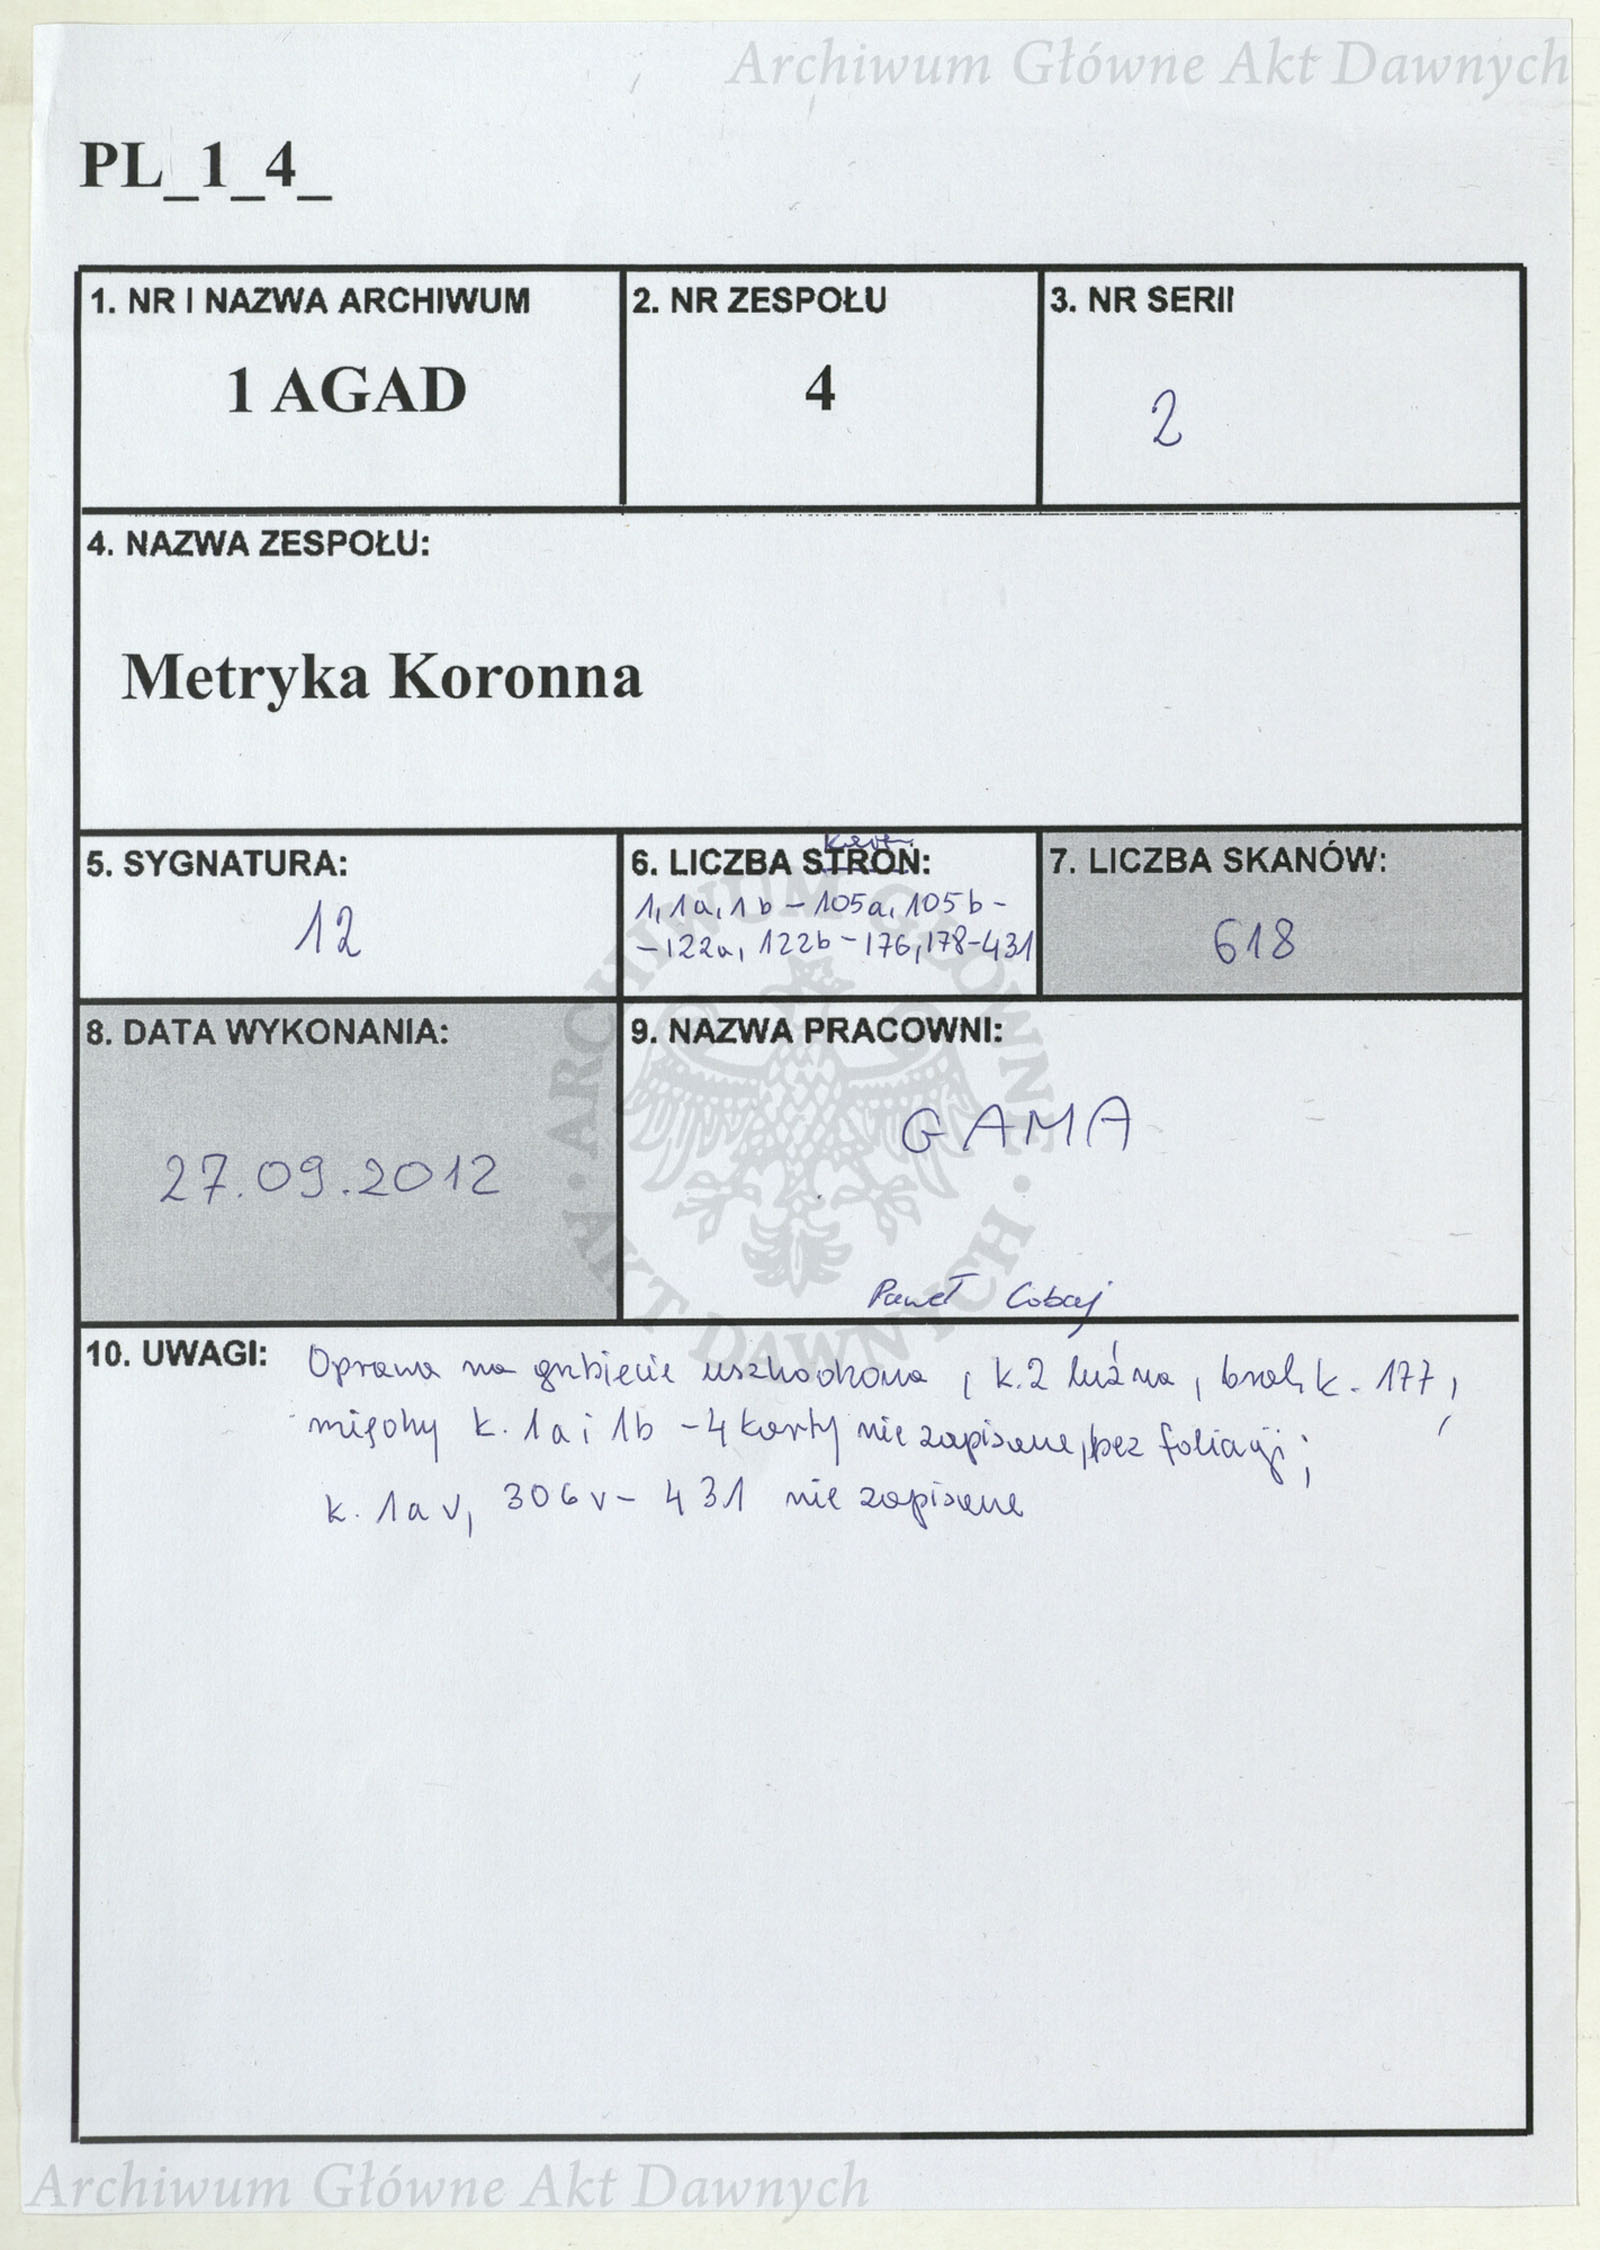 Archiwum Główne Akt Dawnych
PL_1_4_
1. NR I NAZWA ARCHIWUM
1 AGAD
2. NR ZESPOŁU
4
3. NR SERII
2
4. NAZWA ZESPOŁU:
Metryka Koronna
5. SYGNATURA:
12
kart
6. LICZBA STRON:
1, 1a, 1b – 105a, 105b –
– 122a, 122b – 176, 178-431
7. LICZBA SKANÓW:
618
8. DATA WYKONANIA:
27.09.2012
9. NAZWA PRACOWNI:
GAMA
Paweł
10. UWAGI: Oprawa na grzbiecie uszkodzona, k.2 luźna, brak k. 177,
między k. 1a i 1b – 4 karty nie zapisane, bez foliacji;
k. 1av, 306v – 431 nie zapisane
ARCHIWUM GŁÓWNE
AKT DAWNYCH
Archiwum Główne Akt Dawnych